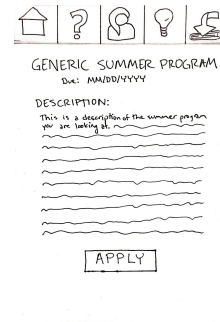 ?
GENERIC SUMMER PROGRAM
Due: MM/DD/YYYY
DESCRIPTION:
This is a description of the summer program
you are looking at.
APPLY